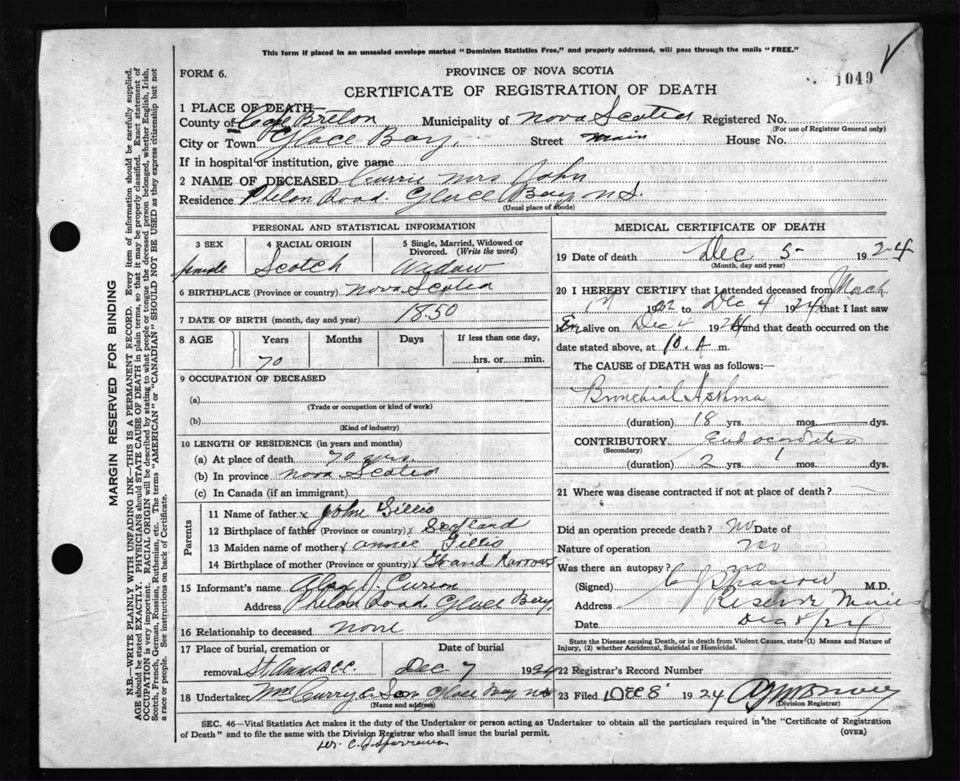 This form if placed in an unsealed envelope marked "Dominion Statistics Free," and properly addressed, will pass through the mails "FREE."
FORM 6.
PROVINCE OF NOVA SCOTIA
1049
CERTIFICATE OF REGISTRATION OF DEATH
1 PLACE OF DEATH—
County of Cape Breton Municipality of Nova Scotia Registered No.
(For use of Registrar General only)
City or Town Glace Bay, Street Main House No.
If in hospital or institution, give name
2 NAME OF DECEASED Currie Mrs John
Residence Phelon Road. Glace Bay N.S.
(Usual place of abode)
PERSONAL AND STATISTICAL INFORMATION
3 SEX 4 RACIAL ORIGIN 5 Single, Married, Widowed or Divorced. (Write the word)
female Scotch Widow
6 BIRTHPLACE (Province or country) Nova Scotia
7 DATE OF BIRTH (month, day and year) 1850
8 AGE Years Months Days If less than one day,
70 hrs. or min.
9 OCCUPATION OF DECEASED
(a)
(Trade or occupation or kind of work)
(b)
(Kind of industry)
10 LENGTH OF RESIDENCE (in years and months)
(a) At place of death 70 yrs.
(b) In province Nova Scotia
(c) In Canada (if an immigrant)
Parents
11 Name of father John Gillis
12 Birthplace of father (Province or country) Scotland
13 Maiden name of mother Annie Gillis
14 Birthplace of mother (Province or country) Grand Narrows
15 Informant's name Alex J.
Address Phelon Road. Glace Bay,
16 Relationship to deceased none
17 Place of burial, cremation or Date of burial
removal St. Anns C.C. Dec. 7 1924
18 Undertaker McCurry & Son Glace Bay N.S.
(Name and address)
MEDICAL CERTIFICATE OF DEATH
19 Date of death Dec 5 1924
(Month, day and year)
20 I HEREBY CERTIFY that I attended deceased from March
1922 Dec 4 1924 that I last saw
alive on Dec 4 1924 and that death occurred on
date stated above, at 10. A m.
The CAUSE of DEATH was as follows:—
Bronchial Asthma
(duration) 18 yrs. mos. dys.
CONTRIBUTORY Endocarditis
(Secondary)
(duration) 2 yrs. mos. dys.
21 Where was disease contracted if not at place of death?
Did an operation precede death? no Date of
Nature of operation no
Was there an autopsy? no
(Signed) M.D.
Address Reserve Mines
Date Dec 8/24
State the Disease causing Death, or in death from Violent Causes, state (1) Means and Nature of
Injury, (2) whether Accidental, Suicidal or Homicidal.
22 Registrar's Record Number
23 Filed DEC 8 1924
(Division Registrar)
SEC. 46—Vital Statistics Act makes it the duty of the Undertaker or person acting as Undertaker to obtain all the particulars required in the "Certificate of Registration
of Death" and to file the same with the Division Registrar who shall issue the burial permit.
(OVER)
MARGIN RESERVED FOR BINDING
N.B.—WRITE PLAINLY WITH UNFADING INK—THIS IS A PERMANENT RECORD. Every item of information should be carefully supplied.
AGE should be stated EXACTLY. PHYSICIANS should STATE CAUSE OF DEATH in plain terms, so that it may be properly classified. Exact statement of
OCCUPATION is very important. RACIAL ORIGIN will be described by stating to what people or tongue the deceased person belonged, whether English, Irish,
Scotch, French, German, Russian, Ruthenian, etc. The terms "AMERICAN" or "CANADIAN" SHOULD NOT BE USED as they express citizenship but not
a race or people. See instructions on back of Certificate.